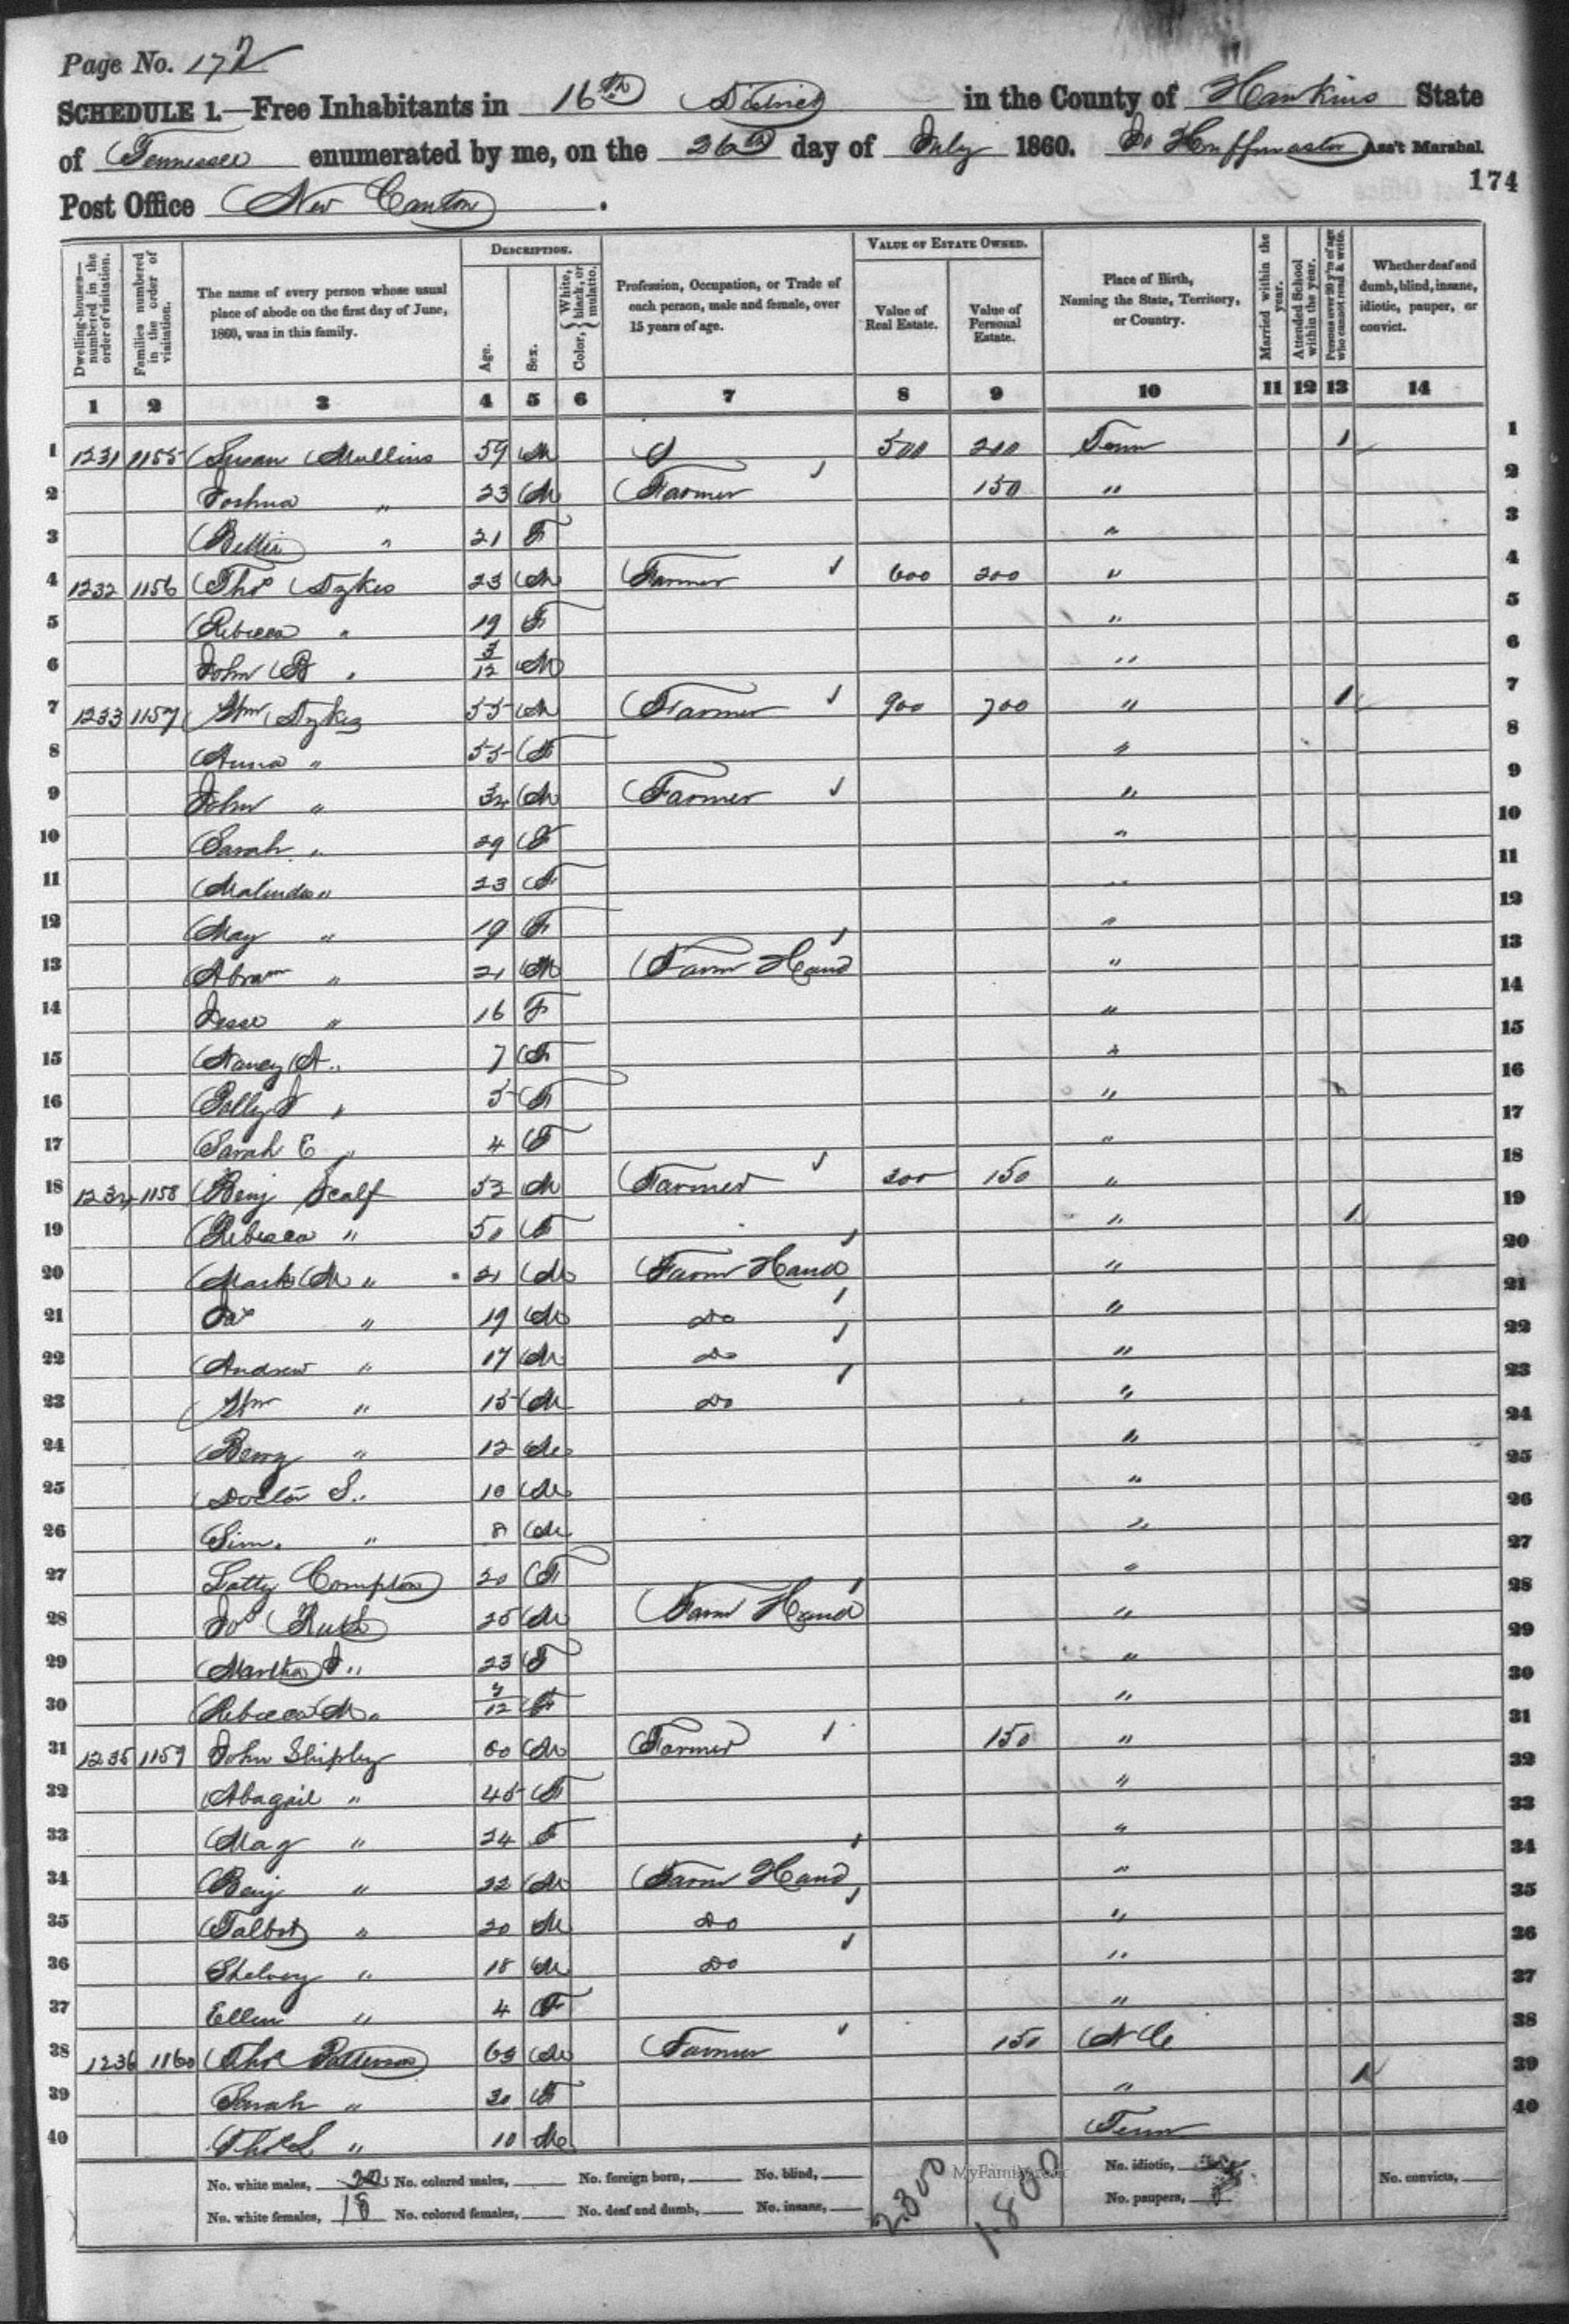 Page No. 172
SCHEDULE 1.—Free Inhabitants in 16th District in the County of Hawkins State
of Tennessee enumerated by me, on the 26th day of July 1860. Huffmaster Ass't Marshal.
174
Post Office New Canton.
Dwelling-houses—numbered in the order of visitation.
Families numbered in the order of visitation.
The name of every person whose usual place of abode on the first day of June, 1860, was in this family.
DESCRIPTION.
Age.
Sex.
Color, { White, black, or mulatto.
Profession, Occupation, or Trade of each person, male and female, over 15 years of age.
VALUE OF ESTATE OWNED.
Value of Real Estate.
Value of Personal Estate.
Place of Birth, Naming the State, Territory, or Country.
Married within the year.
Attended School within the year.
Persons over 20 y'rs of age who cannot read & write.
Whether deaf and dumb, blind, insane, idiotic, pauper, or convict.
1 2 3 4 5 6 7 8 9 10 11 12 13 14
1 1231 1155 Susan Mullins 59 M 500 200 Tenn 1 1
2 Joshua " 23 M Farmer 150 " 2
3 " 21 F " 3
4 1232 1156 Thos Dykes 23 M Farmer 600 200 " 4
5 Rebecca " 19 F " 5
6 John B " 3/12 M " 6
7 1233 1157 Wm Dykes 55 M Farmer 900 700 " 1 7
8 Anna " 55 F " 8
9 John " 34 M Farmer " 9
10 Sarah " 29 F " 10
11 Malinda " 23 F " 11
12 May " 19 F " 12
13 Abram " 21 M Farm Hand " 13
14 Jesse " 16 F " 14
15 Nancy A " 7 F " 15
16 Polly J " 5 F " 16
17 Sarah E " 4 F " 17
18 1234 1158 Benj Scalf 53 M Farmer 200 150 " 18
19 Rebecca " 50 F " 1 19
20 Mark M " 21 M Farm Hand " 20
21 Jas " 19 M Do " 21
22 Andrew " 17 M Do " 22
23 Wm " 15 M Do " 23
24 " 12 M " 24
25 Doctor S " 10 M " 25
26 Sim. " 8 M " 26
27 Compton 20 F " 27
28 25 M Farm Hand " 28
29 Martha J " 23 F " 29
30 Rebecca M " /12 F " 30
31 1235 1159 John Shipley 60 M Farmer 150 " 31
32 Abagail " 45 F " 32
33 " 24 F " 33
34 Benj " 22 M Farm Hand " 34
35 Talbot " 20 M Do " 35
36 " 18 M Do " 36
37 Ellen " 4 F " 37
38 1236 1160 Thos Patterson 63 M Farmer 150 N C 38
39 Sarah " 30 F " 1 39
40 Thos L " 10 M Tenn 40
No. white males, No. colored males, No. foreign born, No. blind, No. idiotic, No. convicts,
No. white females, 18 No. colored females, No. deaf and dumb, No. insane, No. paupers,
2300 1.800